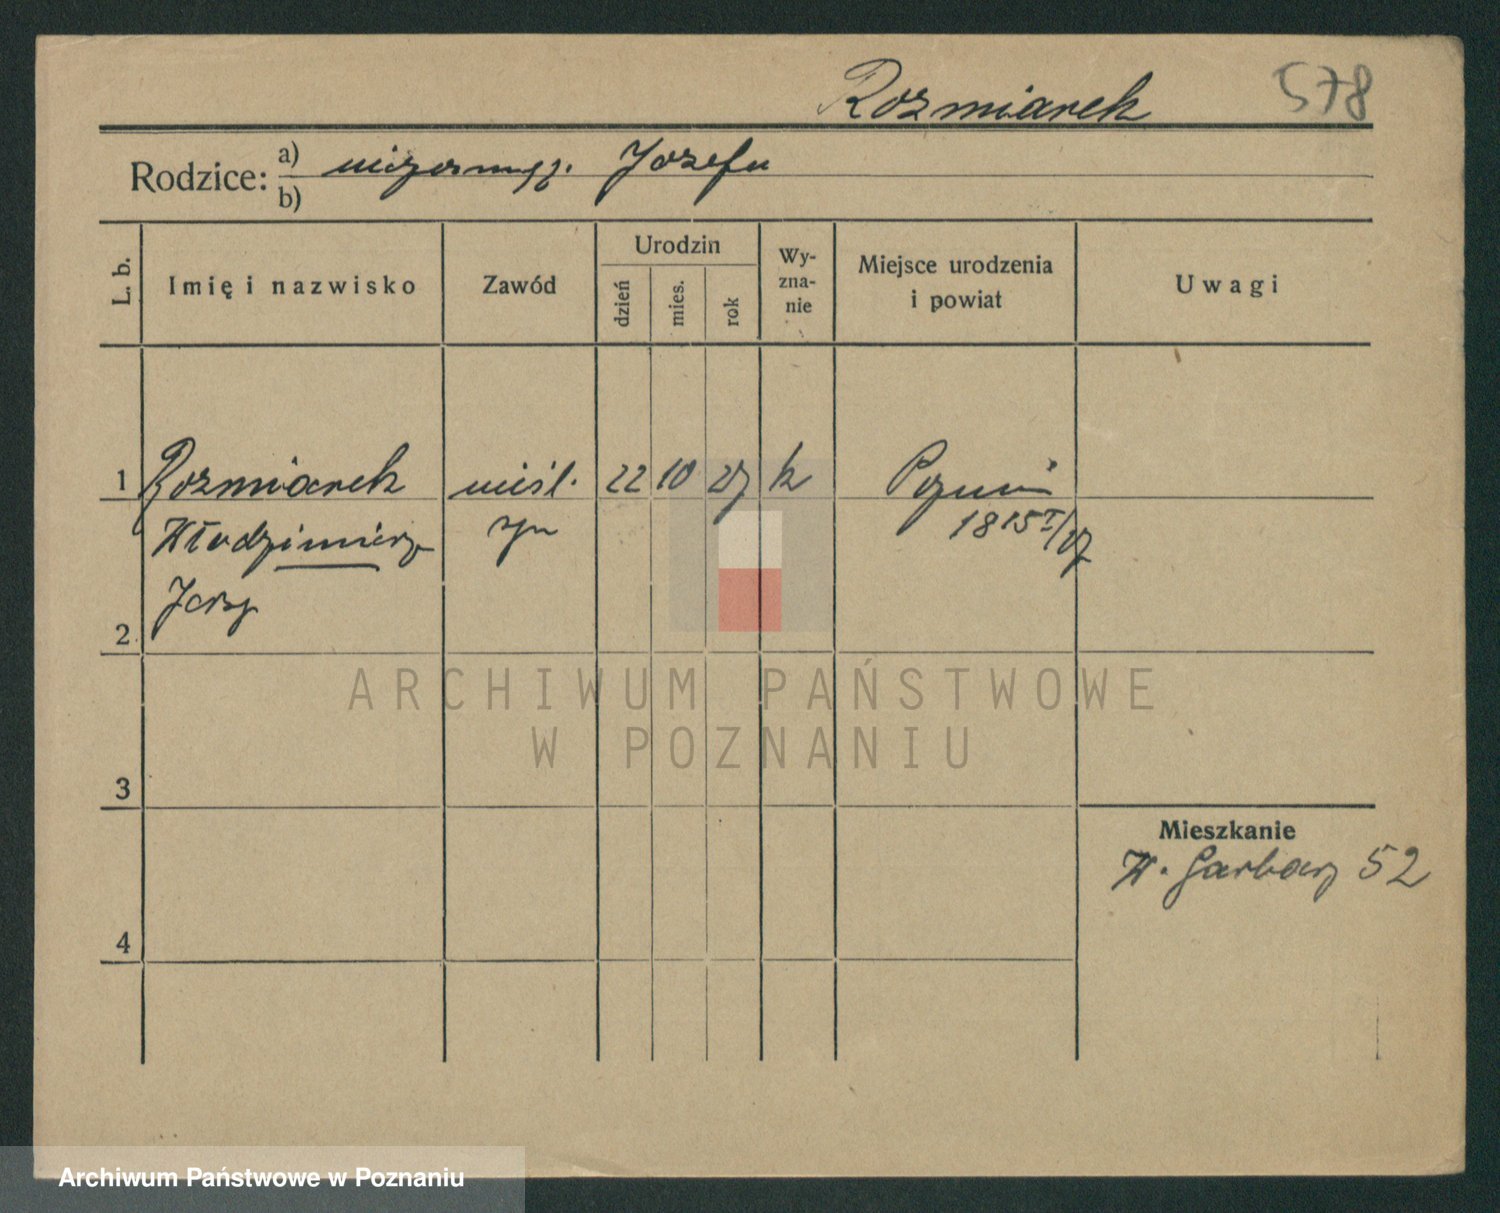 Rozmiarek 578
Rodzice: a) niezamęż. Józefa
b)
L. b. Imię i nazwisko Zawód Urodzin dzień mies. rok Wy-zna-nie Miejsce urodzenia i powiat Uwagi
1 Rozmiarek nieśl. 22 10 27 k Poznań
Włodzimierz syn 1815 I/27
Jerzy
2
ARCHIWUM PAŃSTWOWE
W POZNANIU
3
Mieszkanie
W. Garbary 52
4
Archiwum Państwowe w Poznaniu